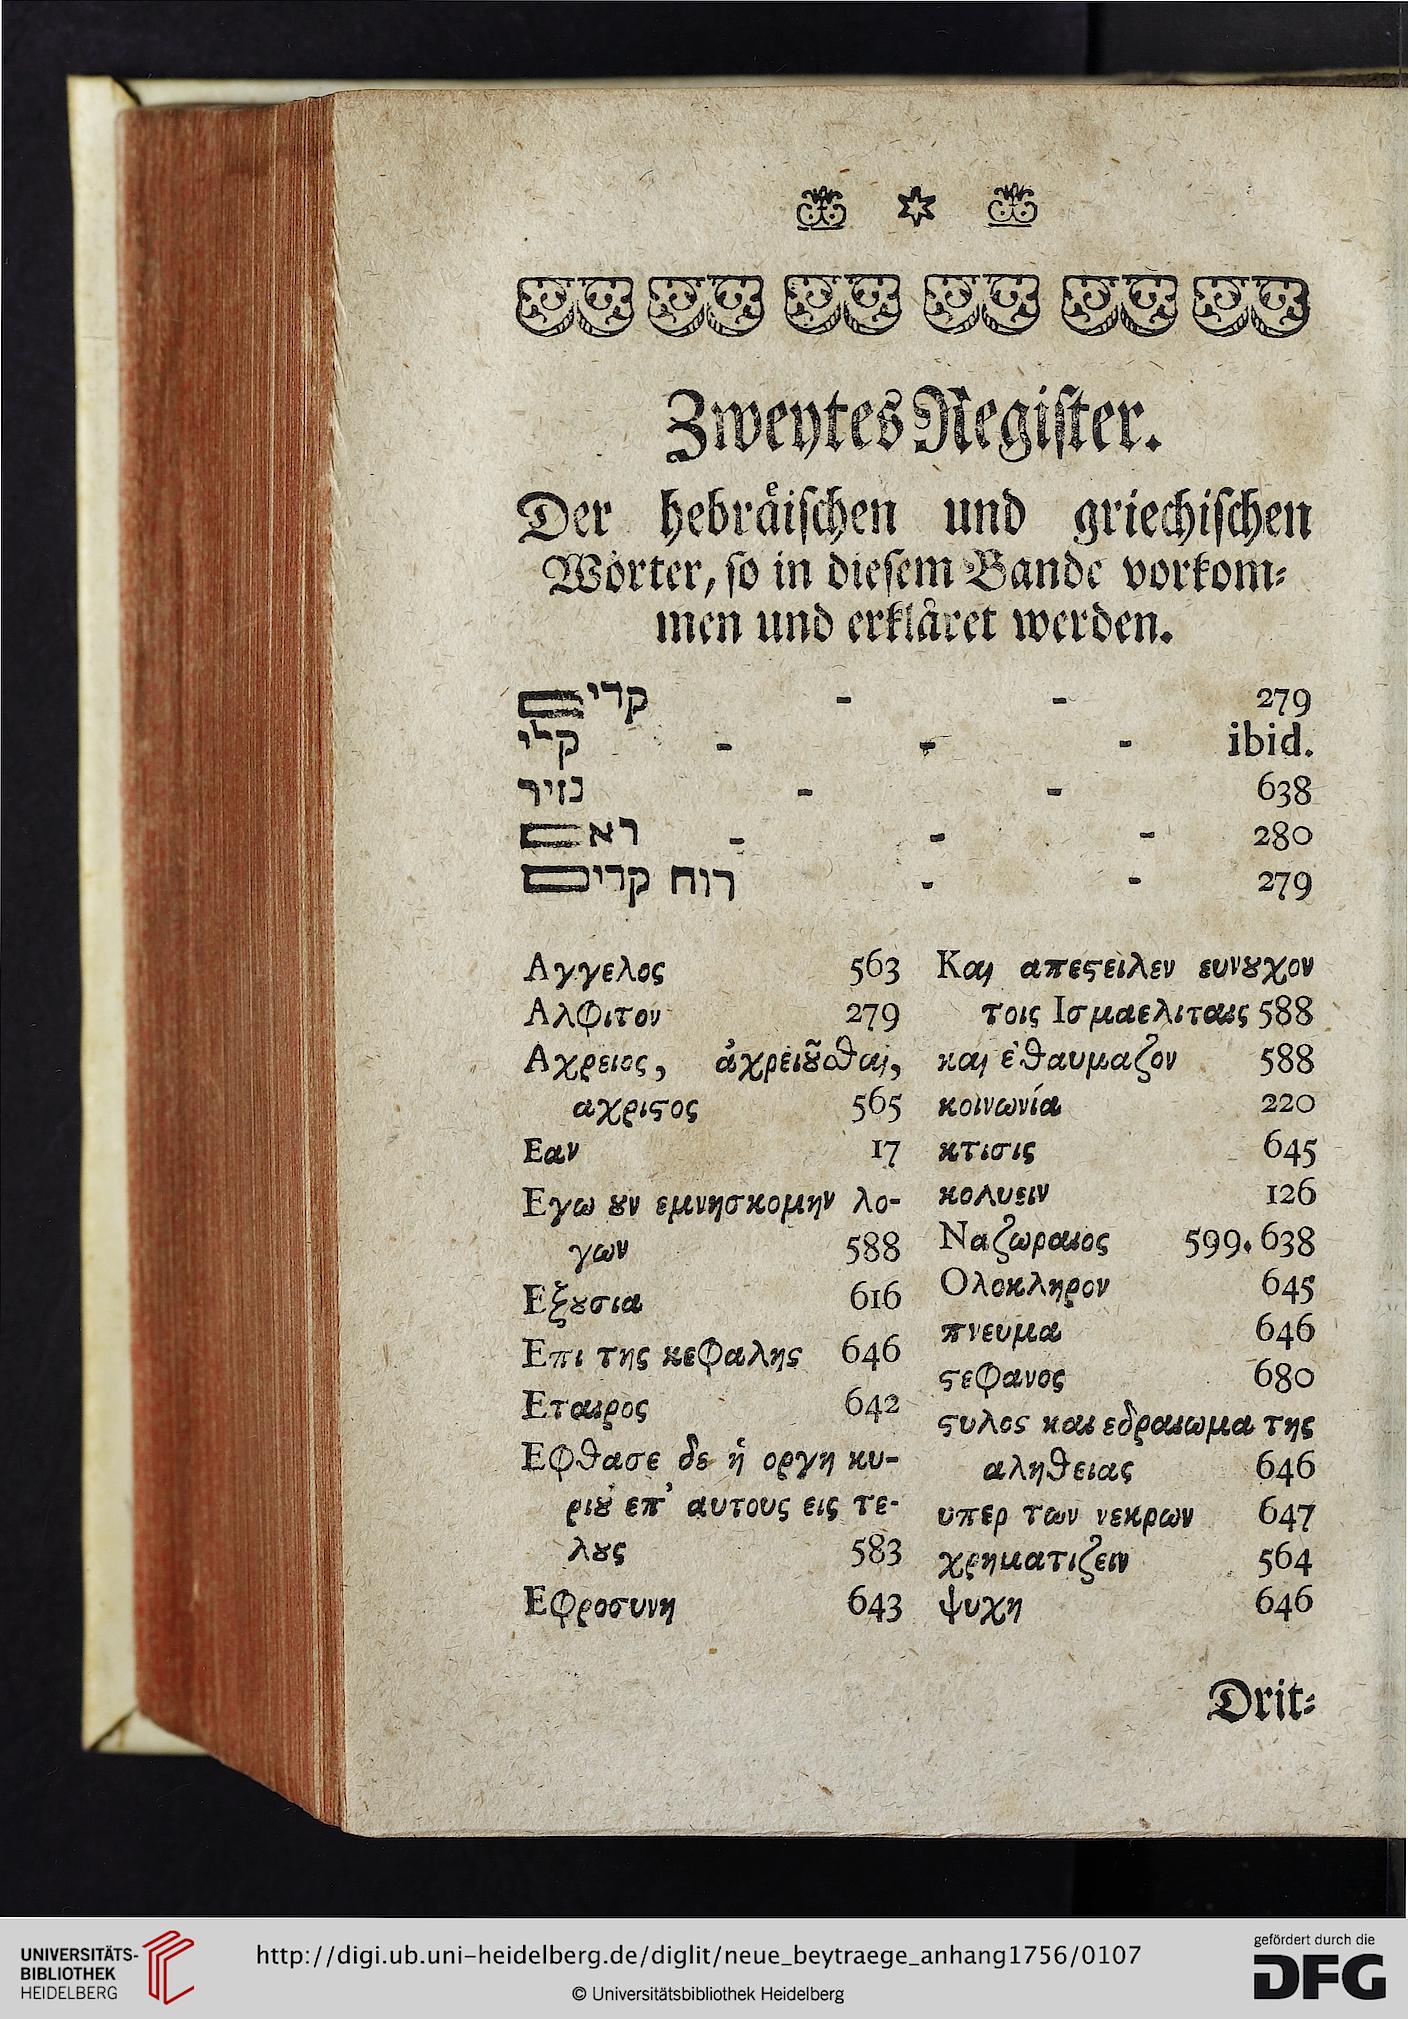 Zweytes Register.
Der hebräischen und griechischen
Wörter, so in diesem Bande vorkom-
men und erkläret werden.
קדים - - 279
קלי - - - ibid.
נזיר - - 638
ראם - - - 280
רוח קדים - - 279
Αγγελος 563
Αλφιτον 279
Αχρειος, ἀχρειȣ͂σθαι,
αχριϛος 565
Εαν 17
Εγω ȣν εμνησκομην λο-
γων 588
Εξȣσια 616
Επι της κεφαλης 646
Εταιρος 642
Εφθασε δε ἡ οργη κυ-
ριȣ επ' αυτους εις τε-
λȣς 583
Εφροσυνη 643
Και απεϛειλεν ευνȣχον
τοις Ισμαελιταις 588
και ἐθαυμαζον 588
κοινωνία 220
κτισις 645
κολυειν 126
Ναζωραιος 599. 638
Ολοκληρον 645
πνευμα 646
ϛεφανος 680
ϛυλος και εδραιωμα της
αληθειας 646
υπερ των νεκρων 647
χρηματιζειν 564
ψυχη 646
Drit-
UNIVERSITÄTS-
BIBLIOTHEK
HEIDELBERG
http://digi.ub.uni-heidelberg.de/diglit/neue_beytraege_anhang1756/0107
© Universitätsbibliothek Heidelberg
gefördert durch die
DFG